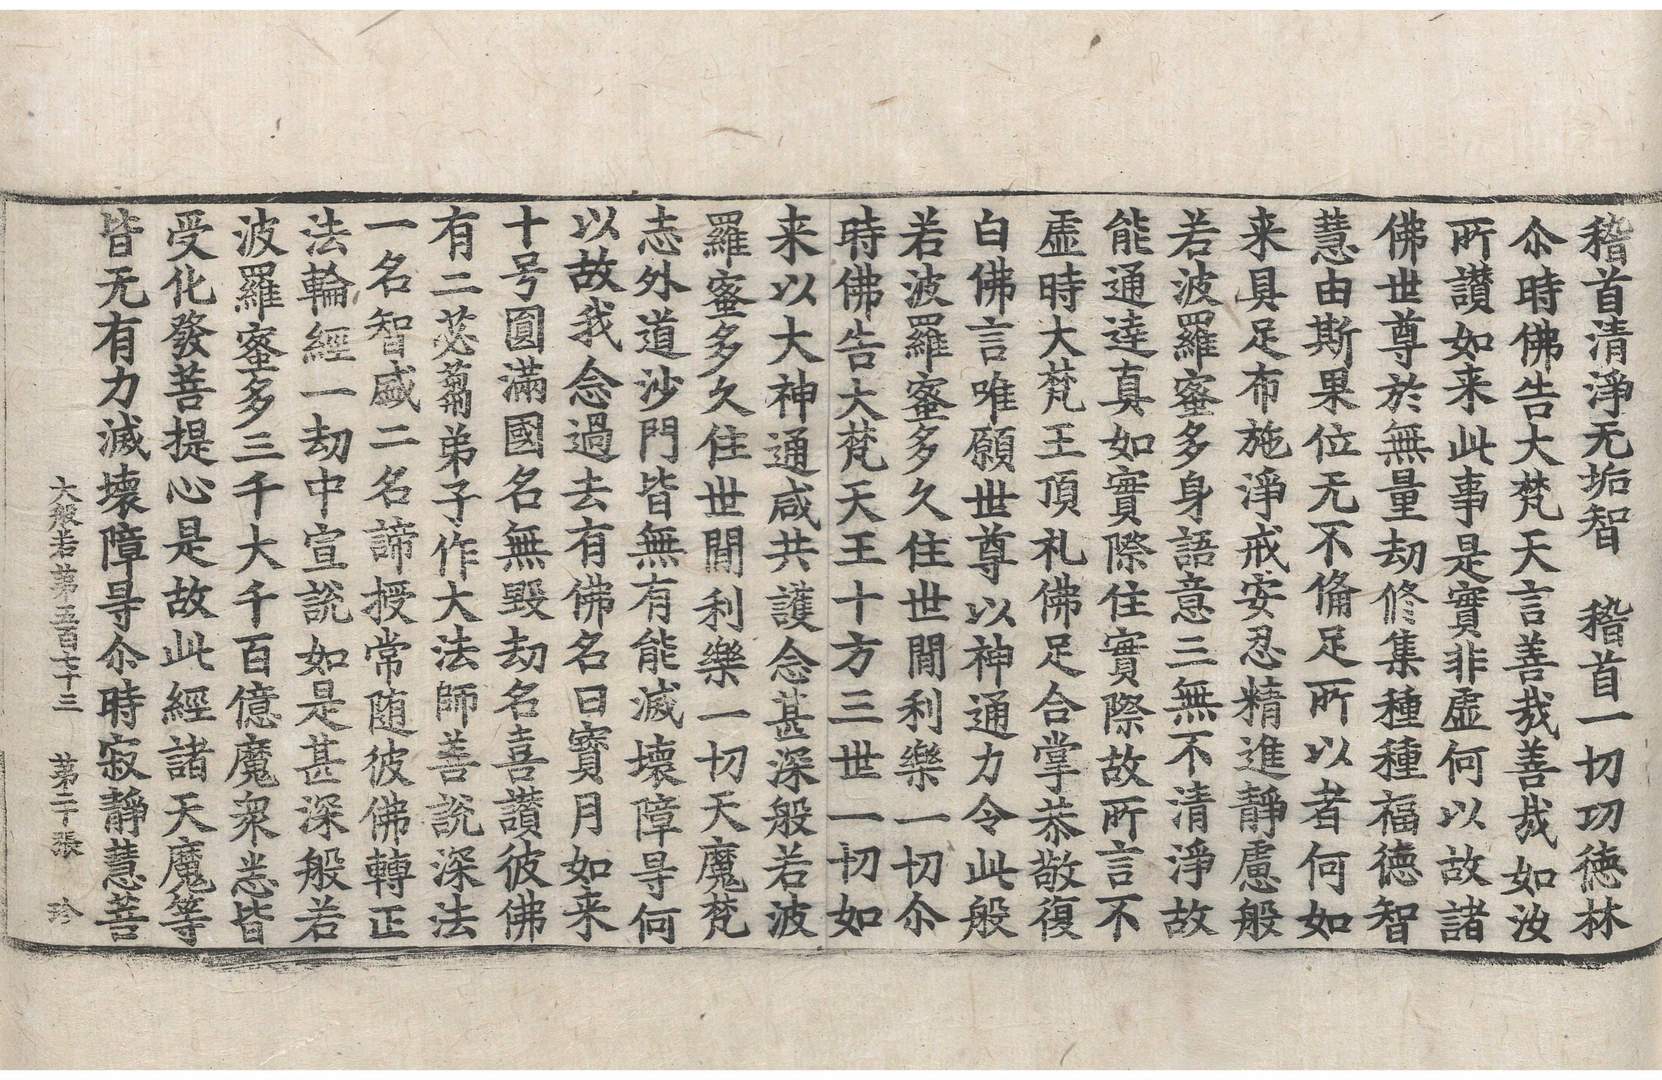 稽首清淨无垢智　稽首一切功德林
尒時佛告大梵天言善哉善哉如汝
所讃如来此事是實非虛何以故諸
佛世尊於無量劫修集種種福德智
慧由斯果位无不俻足所以者何如
来具足布施淨戒安忍精進靜慮般
若波羅蜜多身語意三無不清淨故
能通達真如實際住實際故所言不
虛時大梵王頂礼佛足合掌恭敬復
白佛言唯願世尊以神通力令此般
若波羅蜜多久住世間利樂一切尒
時佛告大梵天王十方三世一切如
来以大神通咸共護念甚深般若波
羅蜜多久住世間利樂一切天魔梵
志外道沙門皆無有能滅壞障㝵何
以故我念過去有佛名曰寳月如来
十号圓滿國名無毀劫名喜讃彼佛
有二苾蒭弟子作大法師善說深法
一名智盛二名諦授常随彼佛轉正
法輪經一劫中宣說如是甚深般若
波羅蜜多三千大千百億魔衆悉皆
受化發菩提心是故此經諸天魔等
皆无有力滅壞障㝵尒時寂靜慧菩
大般若第五百七十三　第二十張　珍